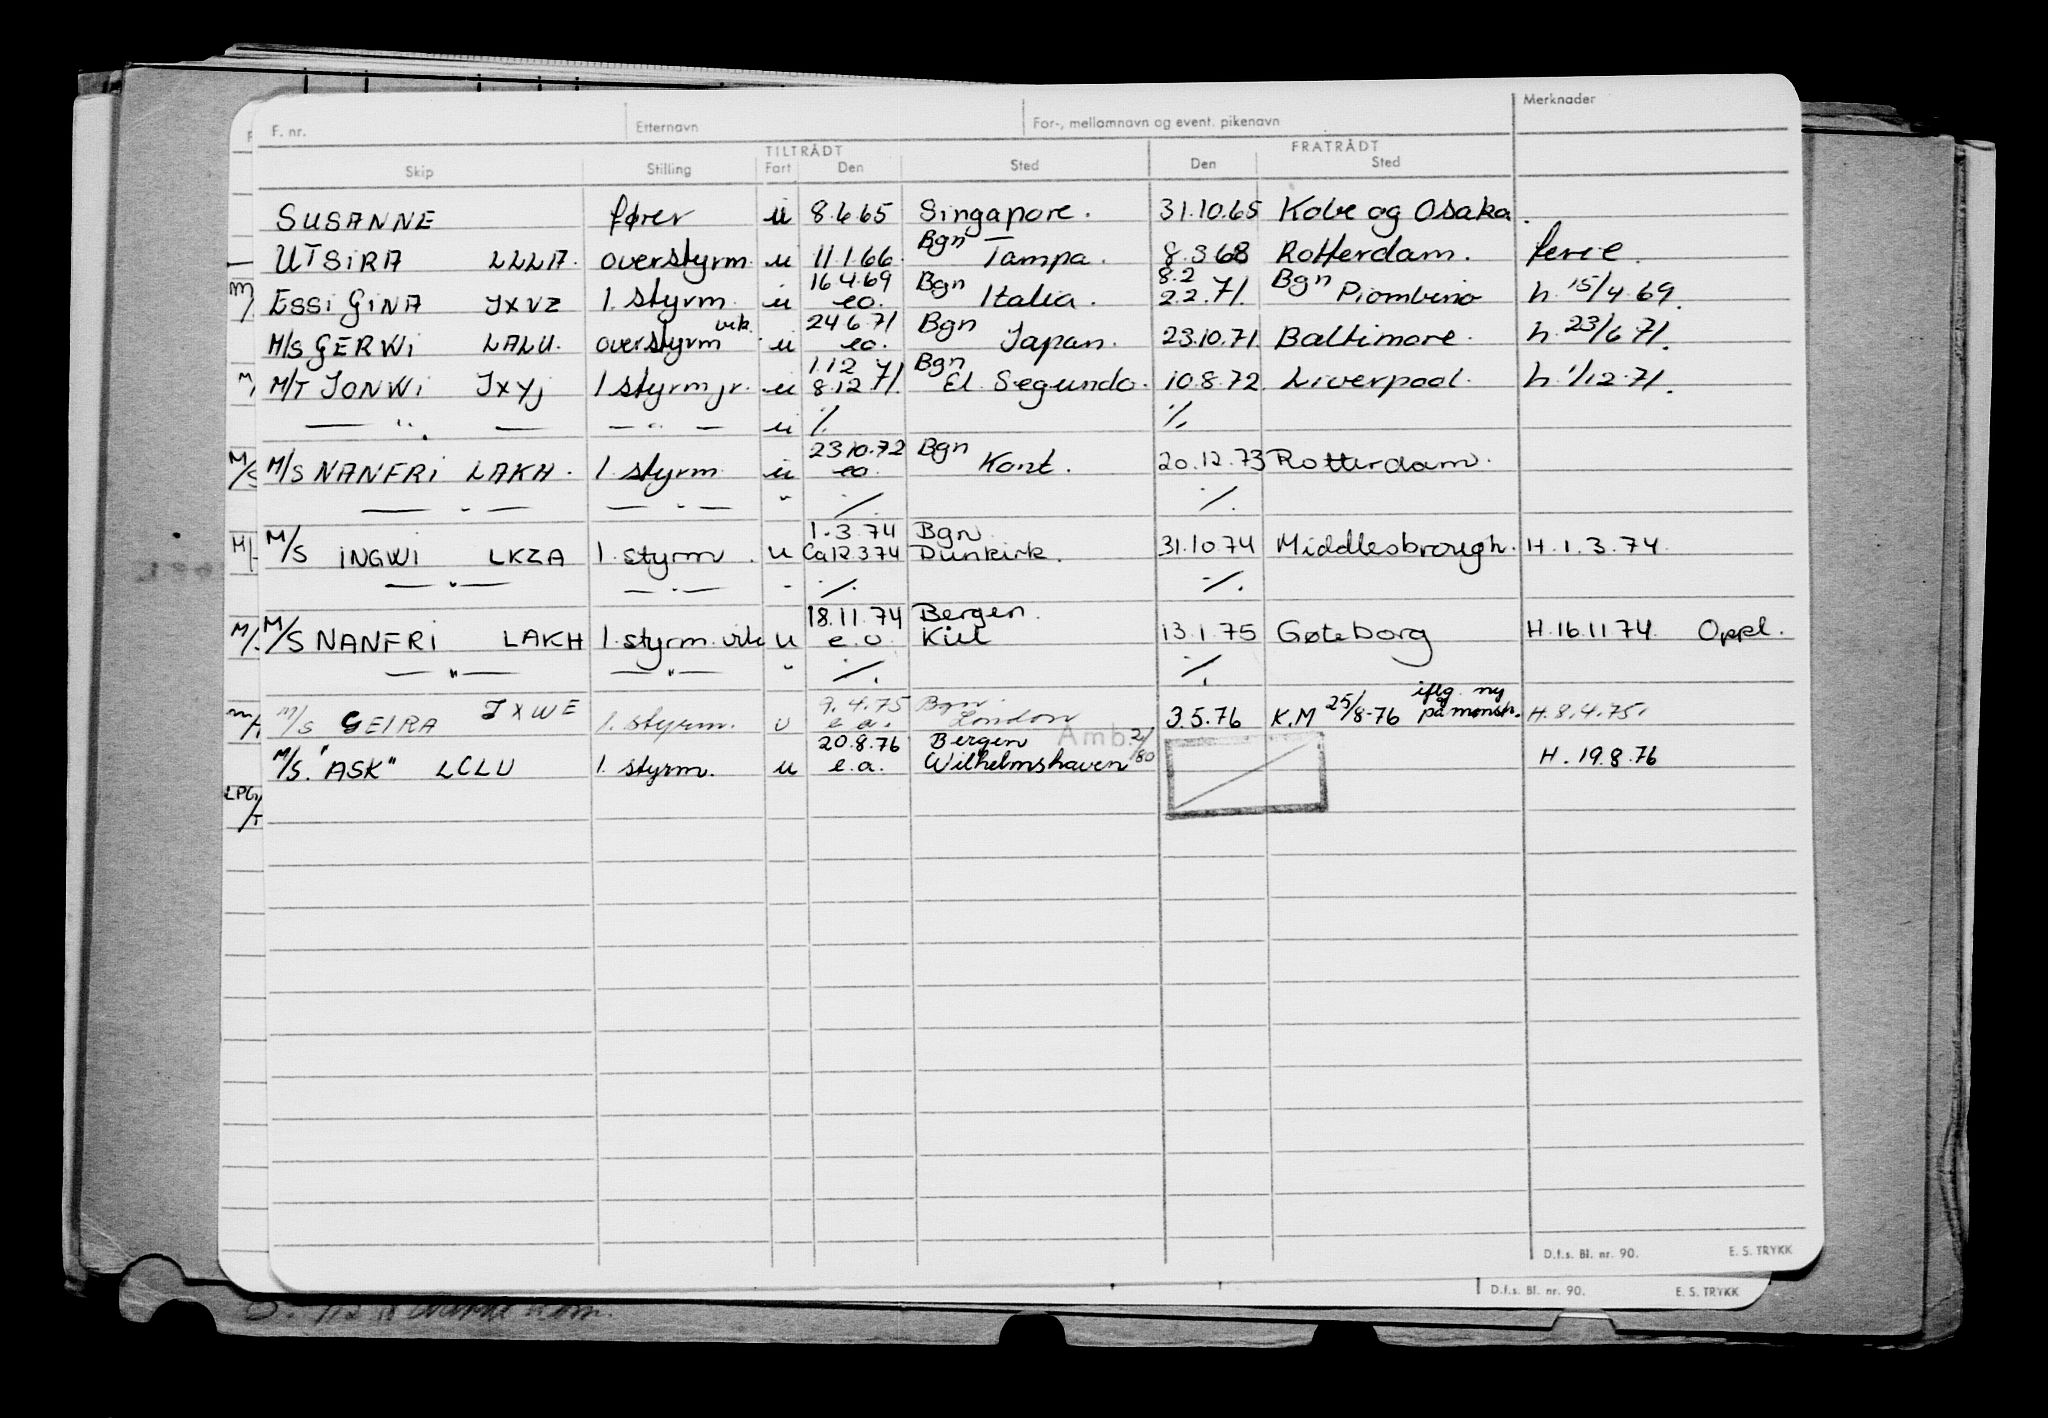 F. nr. Etternavn For-, mellomnavn og event. pikenavn Merknader
TILTRÅDT FRATRÅDT
Skip Stilling Fart Den Sted Den Sted
SUSANNE fører u 8.6.65 Singapore. 31.10.65 Kobe og Osaka.
UTSIRA LLLA. overstyrm. u 11.1.66. Bgn Tampa. 8.3.68 Rotterdam. ferie.
16.4.69 Bgn 8.2 Bgn
ESSI GINA JXVZ 1. styrm. u eo. Italia. 22.71. Piombino h. 15/4.69.
vik. 24.6.71 Bgn
M/S GERWI LALU. overstyrm u eo. Japan. 23.10.71 Baltimore. h. 23/6 71.
1.12 71. Bgn
M/T JONWI JXYJ 1 styrm jr. u 8.12 El Segundo. 10.8.72. Liverpool. h. 1/12.71.
— " — — " — u ·/. ·/.
23.10.72 Bgn
M/S NANFRI LAKH. 1. styrm. u eo. Kont. 20.12.73 Rotterdam.
— " — — " — " ·/. ·/.
1.3.74 Bgn.
M/S INGWI LKZA 1. styrm. u Ca 12.3.74 Dunkirk. 31.10.74 Middlesbrough. H.1.3.74.
— " — — " — " ·/. ·/.
18.11.74 Bergen.
M/S NANFRI LAKH 1. styrm. vik u e.o Kiel 13.1.75 Gøteborg H.16.11.74. Oppl.
— " — — " — " ·/. ·/.
JXWE 7.4.75 Bgn. iflg. ny
M/S GEIRA 1. styrm. u e.a. London 3.5.76 K.M 25/8-76 på mønstr. H.8.4.75.
20.8.76 Bergen Amb. 2/80
M/S. "ASK" LCLU 1. styrm. u e.a. Wilhelmshaven H. 19.8.76
D.f.s. Bl. nr. 90. E. S. TRYKK
D.f.s. Bl. nr. 90. E. S. TRYKK